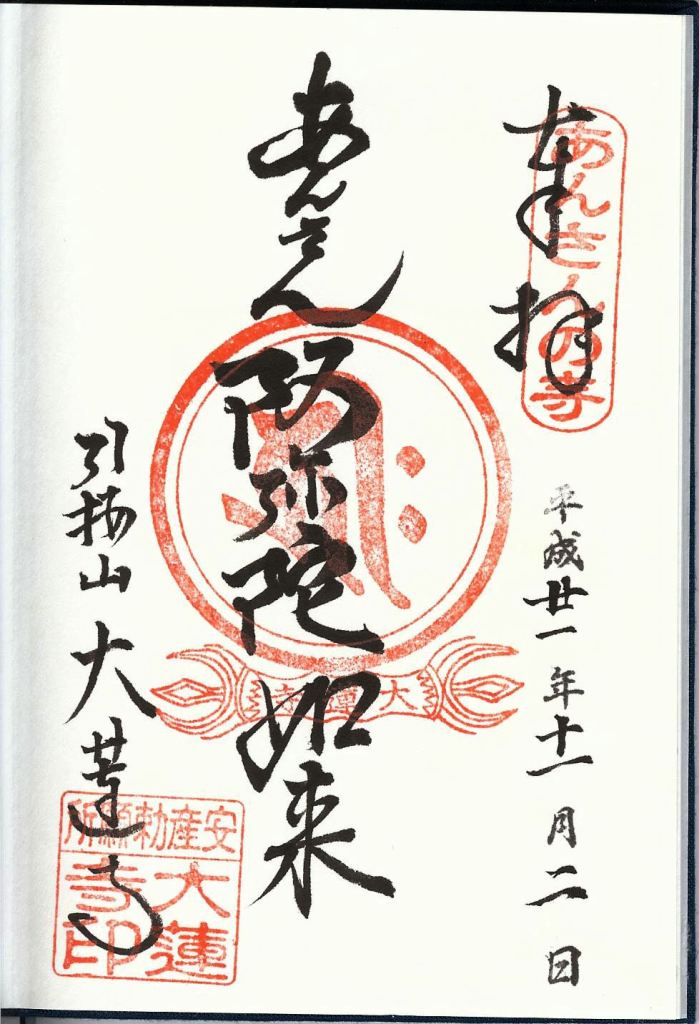 奉拝
あんさんの寺
平成廿一年十一月二日
あんさん
阿弥陀如来
大蓮寺
引接山
大蓮寺
安産勅願所
大蓮
寺印